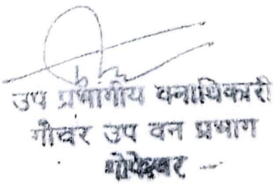 उप प्रभागीय वनाधिकारी
गौचर उप वन प्रभाग
गोपेश्वर